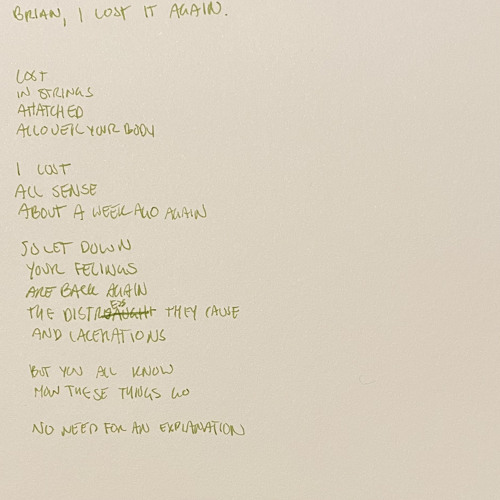 BRIAN, I LOST IT AGAIN.
LOST
IN STRINGS
ATTATCHED
ALL OVER YOUR BODY
I LOST
ALL SENSE
ABOUT A WEEK AGO AGAIN
SO LET DOWN
YOUR FELINGS
ARE BACK AGAIN
THE DISTRESS THEY CAUSE
AND LACERATIONS
BUT YOU ALL KNOW
HOW THESE THINGS GO
NO NEED FOR AN EXPLANATION